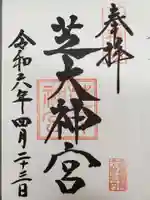 奉拝
芝大神宮
令和六年四月二十三日